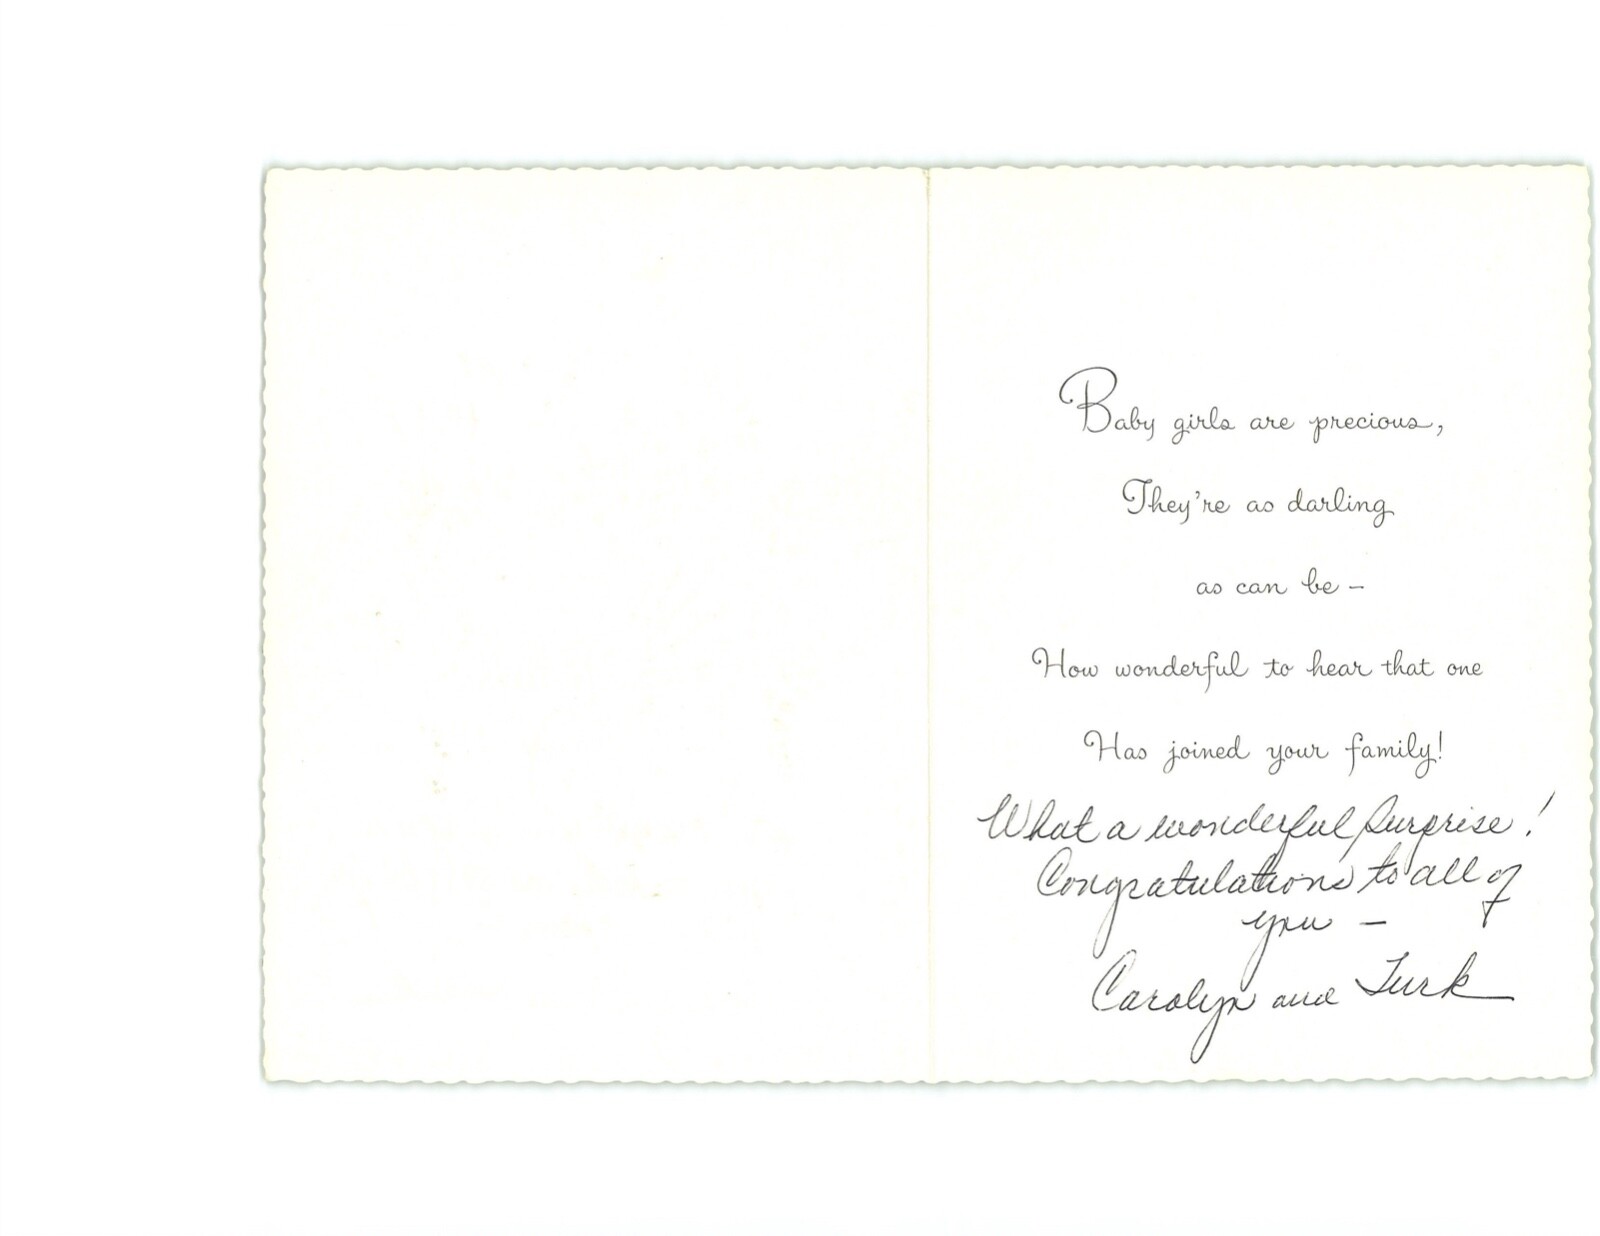 Baby girls are precious,
They're as darling
as can be –
How wonderful to hear that one
Has joined your family!
What a wonderful surprise!
Congratulations to all of
you –
Carolyn and Turk